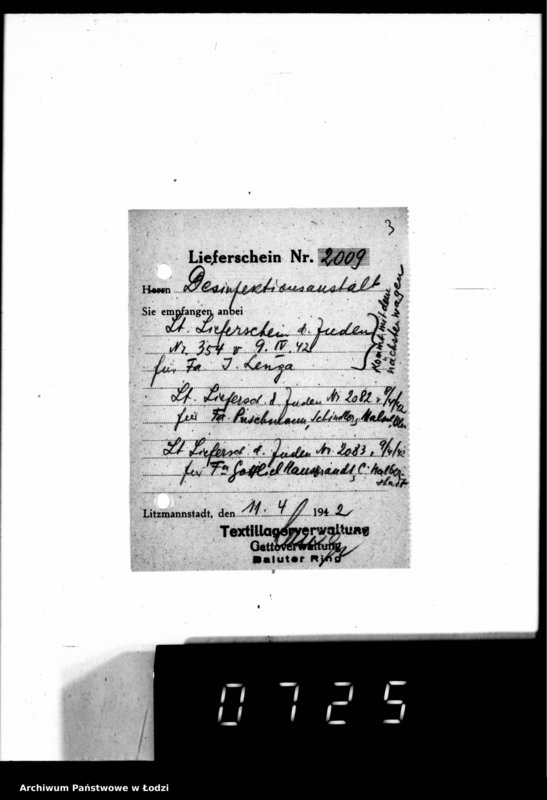 3
Lieferschein Nr. 2009
Herrn Desinfektionsanstalt
Sie empfangen anbei
Lt. Lieferschein d. Juden
Nr. 354 v 9. IV. 42
für Fa. J. Lenga
kommt mit dem
nächsten wagen
Lt. Liefersch d. Juden Nr 2082 v. 9/4/42
für Fa. Puschmann, Schindler,
Lt Liefersch d. Juden Nr. 2083 v. 9/4/42
für Fa Gottlieb
Litzmannstadt, den 11. 4 1942
Textillagerverwaltung
Gettoverwaltung
Baluter Ring
0725
Archiwum Państwowe w Łodzi